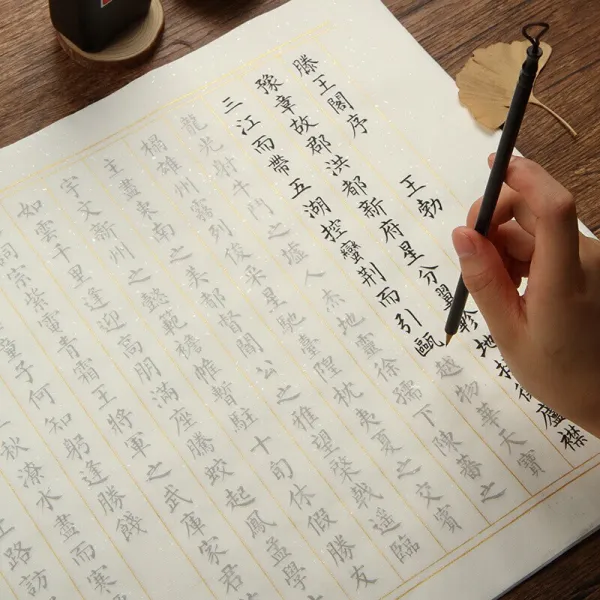 滕王閣序 王勃
豫章故郡洪都新府星分翼軫地接廬襟
三江而帶五湖控蠻荊而引甌越物華天寶
龍光射牛鬥之墟人杰地靈徐孺下陳蕃之
榻雄州霧列俊采星馳臺隍枕夷夏之交賓
主盡東南之美都督閻公之雅望棨戟遥臨
宇文新州之懿範襜帷暫駐十旬休假勝友
如雲千里逢迎高朋滿座騰蛟起鳳孟學
詞宗紫電青霜王將軍之武庫家君
童子何知躬逢勝餞
秋潦水盡而寒
路訪